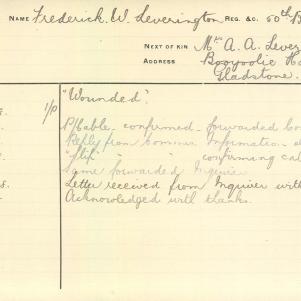 NAME Frederick. W. Leverington REG. &C. 50th B
NEXT OF KIN Mr A. A. Lever
ADDRESS Booyoolie
Gladstone.
1/P "Wounded".
P/Cable. confirmed. forwarded
Reply from Information
" " confirming
Same forwarded Inquirer
Letter received from Inquirer with
Acknowledged with thanks.